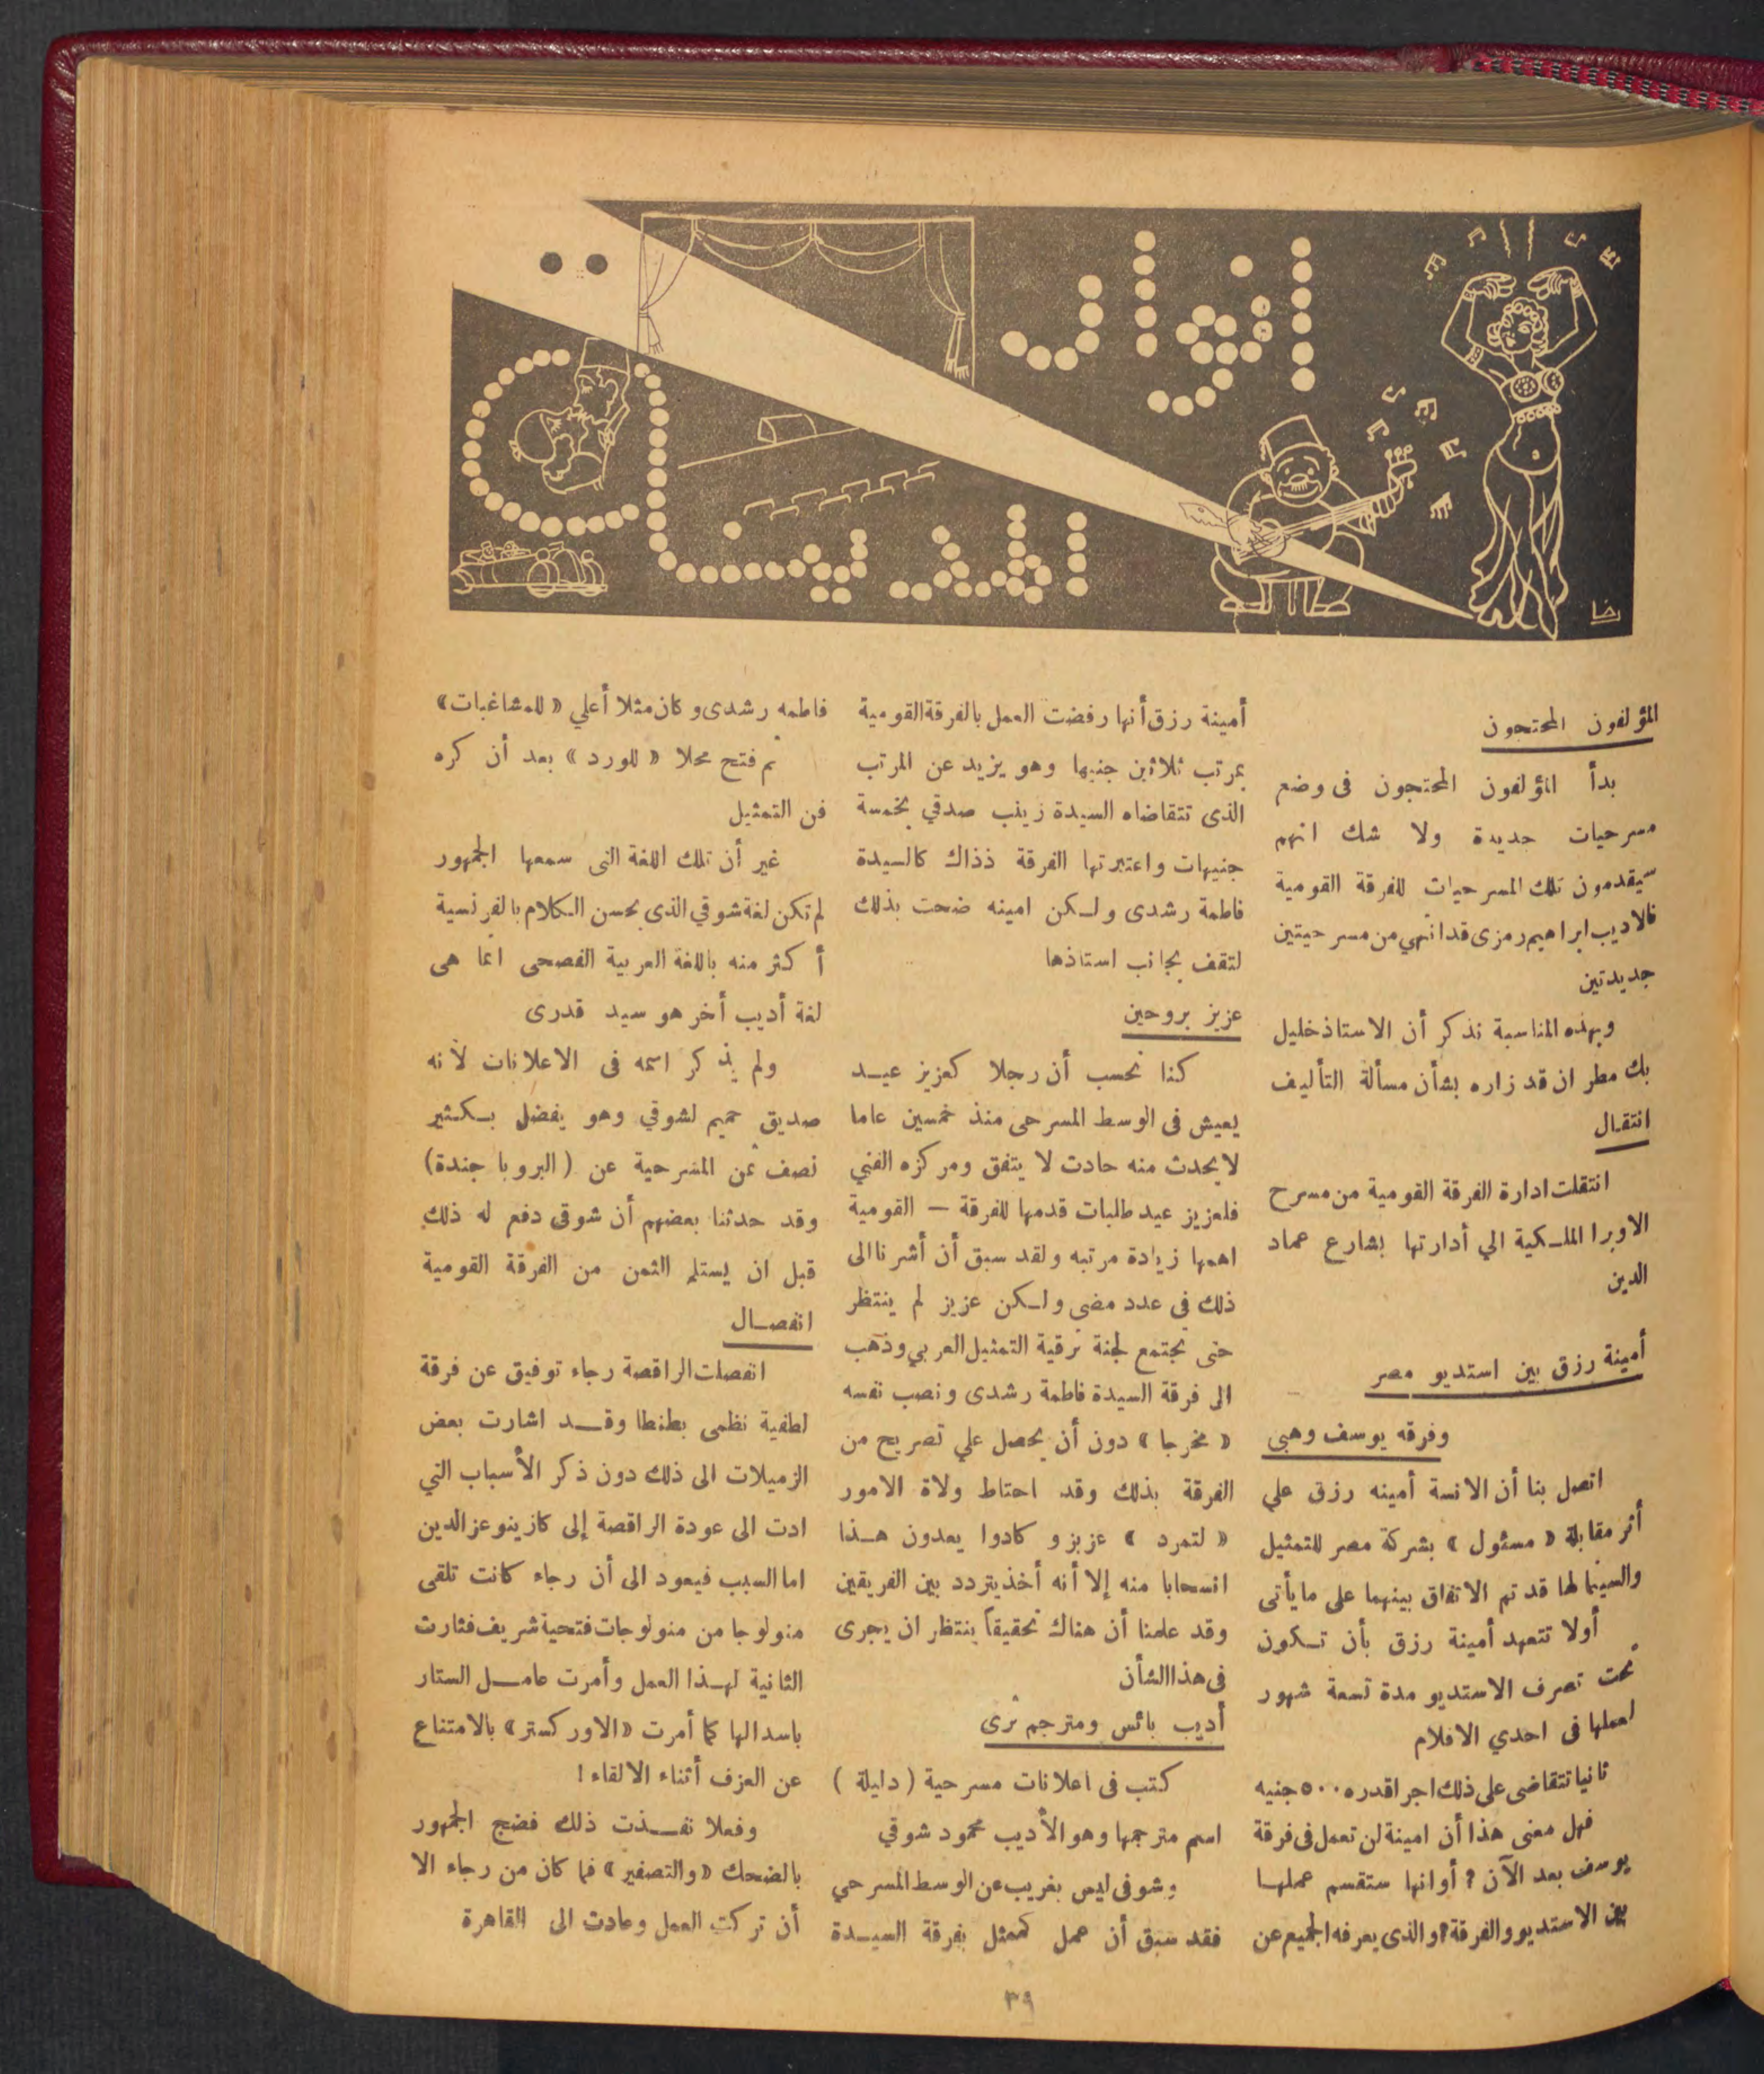 انوار
المدينة
رضا
المؤلفون المحتجون
بدأ المؤلفون المحتجون فى وضع
مسرحيات جديدة ولا شك انهم
سيقدمون تلك المسرحيات للفرقة القومية
فالاديب ابراهيم رمزى قد انتهي من مسرحيتين
جديدتين
وبهذه المناسبة نذكر أن الاستاذ خليل
بك مطران قد زاره بشأن مسألة التأليف
انتقال
انتقلت ادارة الفرقة القومية من مسرح
الاوبرا الملكية الي أدارتها بشارع عماد
الدين
أمينة رزق بين استديو مصر
وفرقه يوسف وهبى
اتصل بنا أن الانسة أمينه رزق علي
أثر مقابلة « مسئول » بشركة مصر للتمثيل
والسينما لها قد تم الاتفاق بينهما على ما يأتى
أولا تتعهد أمينة رزق بأن تكون
تحت تصرف الاستديو مدة تسعة شهور
لعملها فى احدي الافلام
ثانيا تتقاضى على ذلك اجرا قدره ٥٠٠ جنيه
فهل معنى هذا أن امينة لن تعمل فى فرقة
يوسف بعد الآن ? أوانها ستقسم عملها
بين الاستديو والفرقة? والذى يعرفه الجميع عن
أمينة رزق أنها رفضت العمل بالفرقة القومية
بمرتب ثلاثين جنيها وهو يزيد عن المرتب
الذى تتقاضاه السيدة زينب صدقي بخمسة
جنيهات واعتبرتها الفرقة ذذاك كالسيدة
فاطمة رشدى ولكن امينه ضحت بذلك
لتقف بجانب استاذها
عزيز بروحين
كنا نحسب أن رجلا كعزيز عيد
يعيش فى الوسط المسرحى منذ خمسين عاما
لا يحدث منه حادث لا يتفق ومركزه الفني
فلعزيز عيد طلبات قدمها للفرقة — القومية
اهمها زيادة مرتبه ولقد سبق أن أشرنا الى
ذلك في عدد مضى ولكن عزيز لم ينتظر
حتى تجتمع لجنة ترقية التمثيل العربي وذهب
الى فرقة السيدة فاطمة رشدى ونصب نفسه
« مخرجا » دون أن يحصل علي تصريح من
الفرقة بذلك وقد احتاط ولاة الامور
« لتمرد » عزيز و كادوا يعدون هذا
انسحابا منه إلا أنه أخذ يتردد بين الفريقين
وقد علمنا أن هناك تحقيقاً ينتظر ان يجرى
فى هذا الشأن
أديب بائس ومترجم ثرى
كتب فى اعلانات مسرحية ( دليلة )
اسم مترجمها وهو الأديب محمود شوقي
وشوقى ليس بغريب عن الوسط المسرحي
فقد سبق أن عمل كممثل بفرقة السيدة
فاطمه رشدى و كان مثلا أعلي « للمشاغبات »
ثم فتح محلا « للورد » بعد أن كره
فن التمثيل
غير أن تلك اللغة التى سمعها الجمهور
لم تكن لغة شوقي الذى يحسن الكلام بالفرنسية
أكثر منه باللغة العربية الفصحى انما هى
لغة أديب أخر هو سيد قدرى
ولم يذكر اسمه فى الاعلانات لأنه
صديق حميم لشوقي وهو يفضل بكثير
نصف ثمن المسرحية عن ( البروبا جندة )
وقد حدثنا بعضهم أن شوقى دفع له ذلك
قبل ان يستلم الثمن من الفرقة القومية
انفصال
انفصلت الراقصة رجاء توفيق عن فرقة
لطفية نظمى بطنطا وقد اشارت بعض
الزميلات الى ذلك دون ذكر الأسباب التي
ادت الى عودة الراقصة إلى كازينو عز الدين
اما السبب فيعود الى أن رجاء كانت تلقى
منولوجا من منولوجات فتحية شريف فثارت
الثانية لهذا العمل وأمرت عامل الستار
باسدالها كما أمرت « الاوركستر » بالامتناع
عن العزف أثناء الالقاء !
وفعلا نفذت ذلك فضج الجمهور
بالضحك « والتصفير » فما كان من رجاء الا
أن تركت العمل وعادت الى القاهرة
٣٩